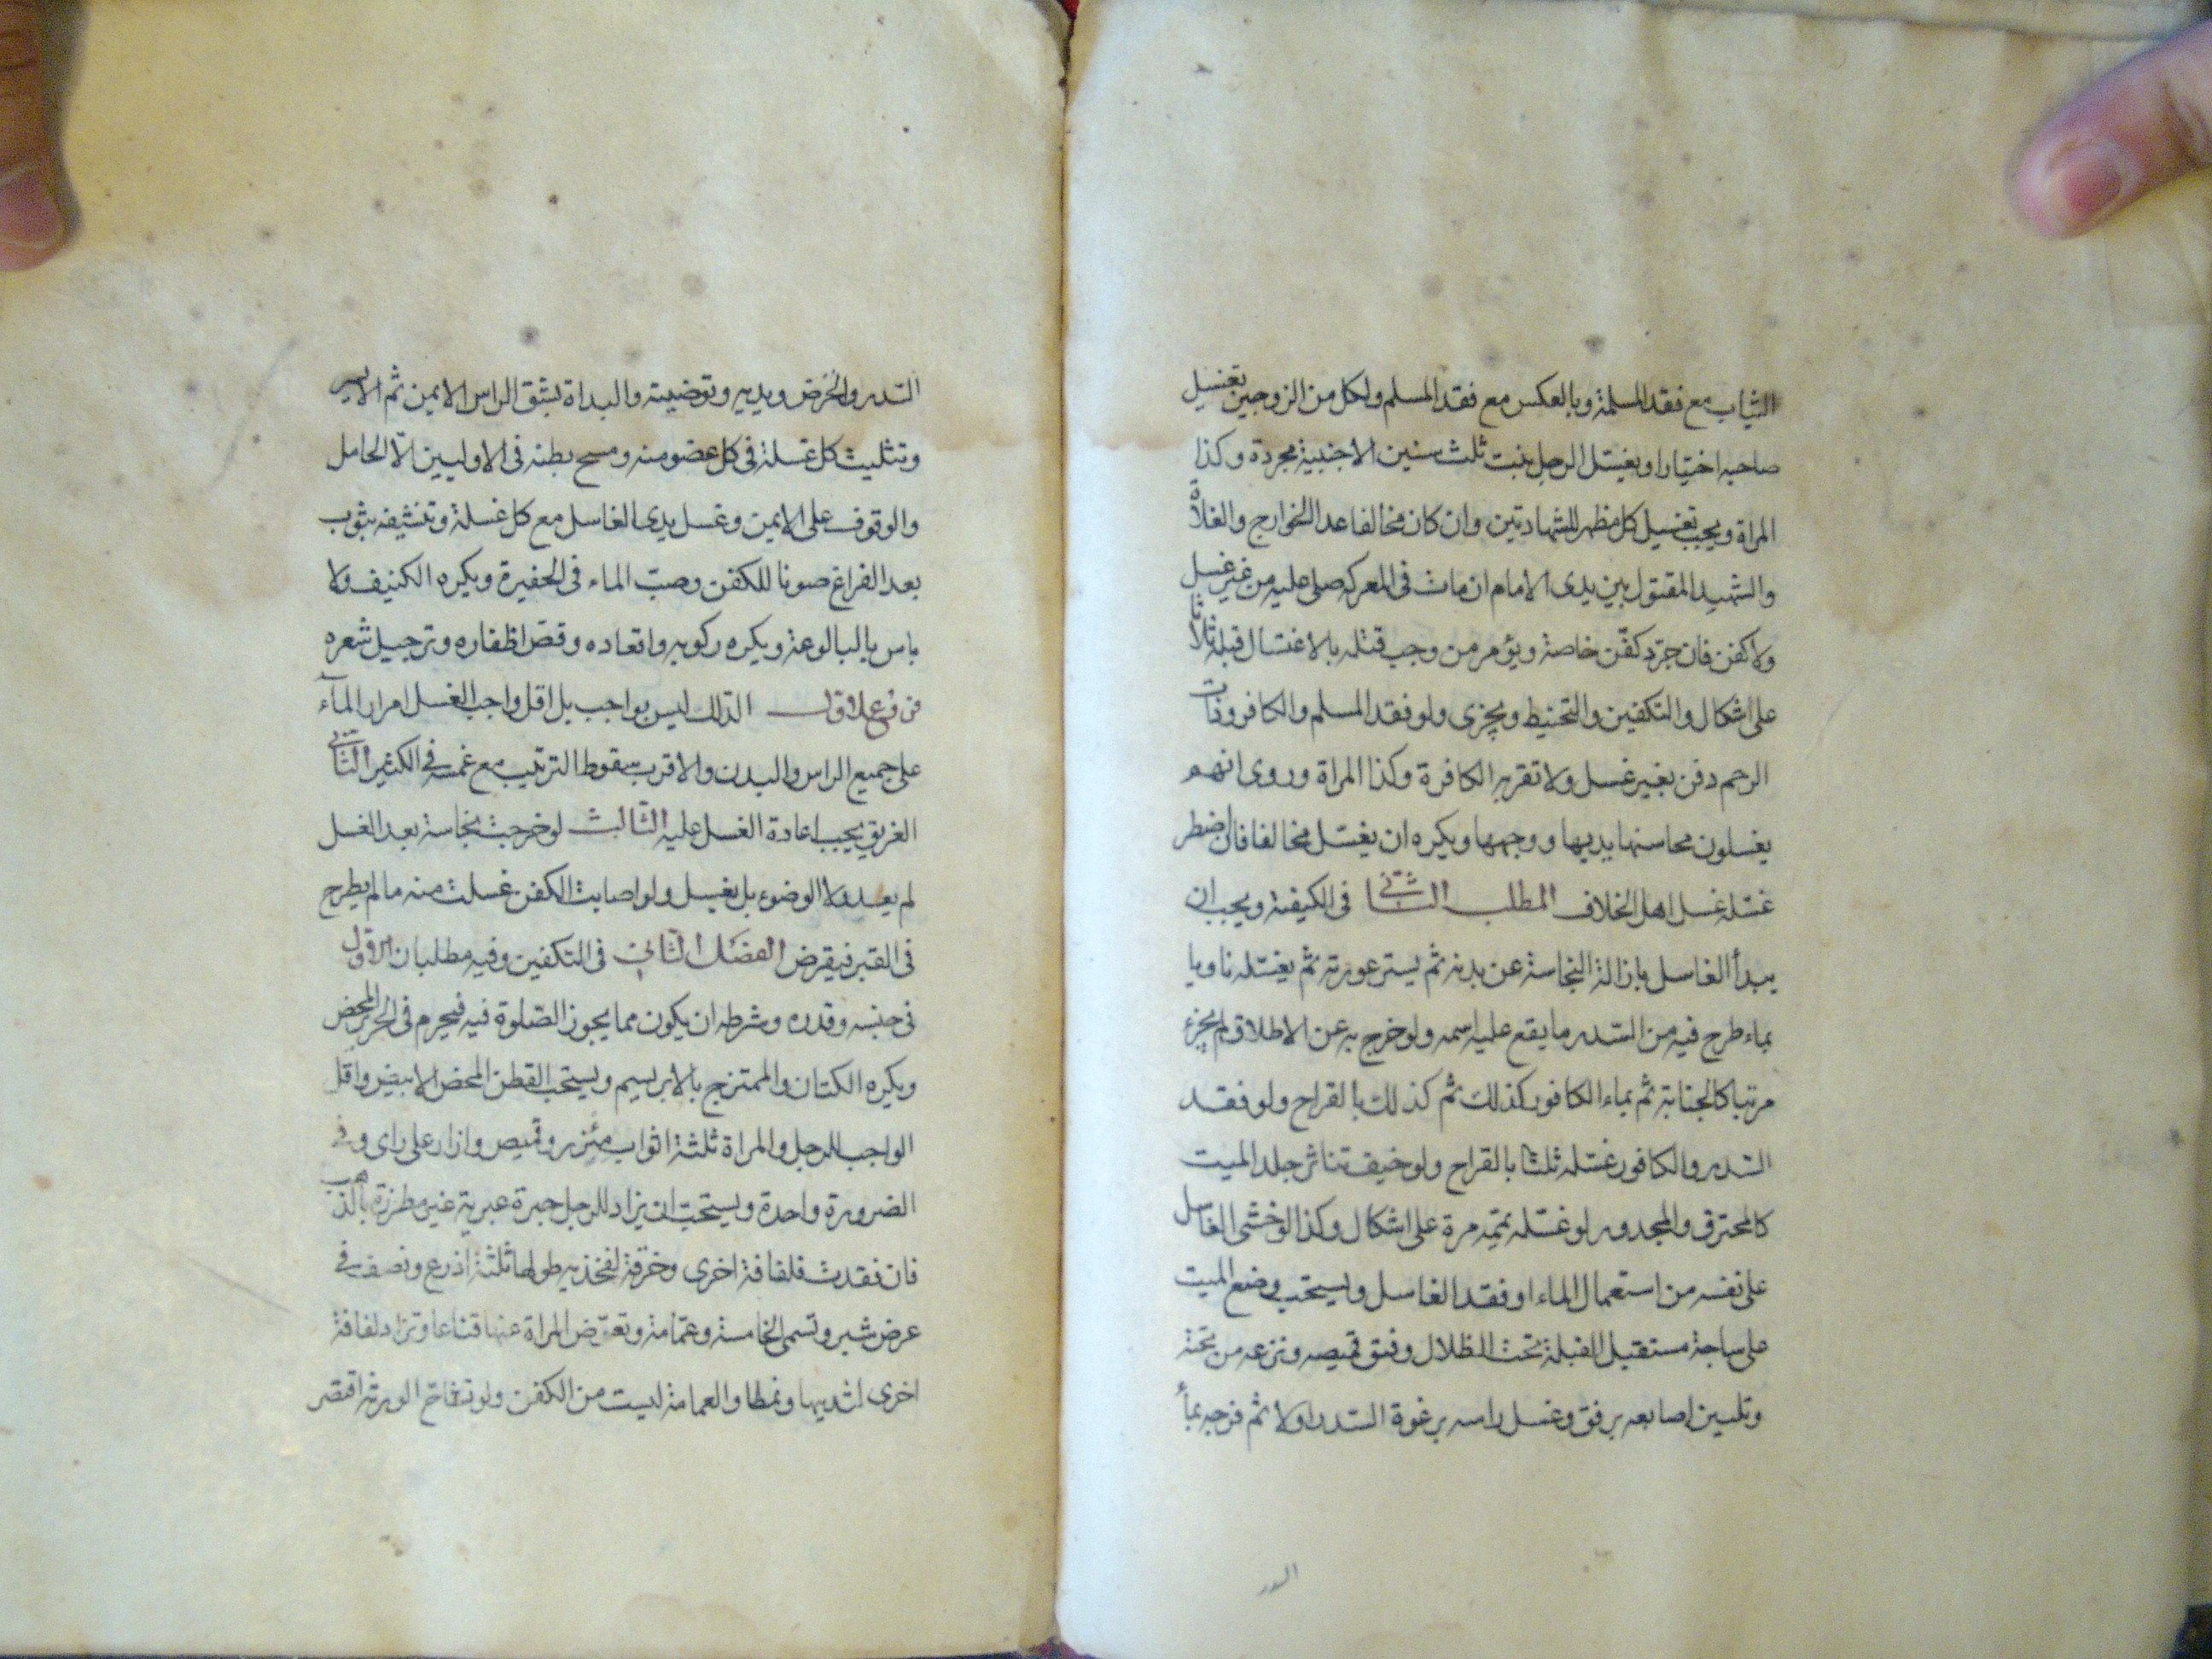 الثياب مع فقد المسلمة وبالعكس مع فقد المسلم ولكل من الزوجين تغسيل
صاحبه اختيارا ويغسل الرجل بنت ثلث سنين الاجنبية مجردة وكذا
المراة ويجب تغسيل كل مظهر للشهادتين وان كان مخالفا عدا الخوارج والغلاة
والشهيد المقتول بين يدى الامام ان مات فى المعركه صلى عليه من غير غسل
ولا كفن فان جرد كفن خاصة ويؤمر من وجب قتله بالاغتسال قبله ثلاثا
على اشكال والتكفين والتحنيط ويجزى ولو فقد المسلم والكافر وذات
الرحم دفن بغير غسل ولا تقربه الكافرة وكذا المراة وروى انهم
يغسلون محاسنها يديها ووجهها ويكره ان يغسل مخالفا فان اضطر
غسله غسل اهل الخلاف المطلب الثانى فى الكيفية ويجب ان
يبدأ الغاسل بازالة النجاسة عن بدنه ثم يستر عورته ثم يغسله ناويا
بماء طرح فيه من السدر ما يقع عليه اسمه ولو خرج به عن الاطلاق لم يجزء
مرتبا كالجنابة ثم بماء الكافور كذلك ثم كذلك بالقراح ولو فقد
السدر والكافور غسله ثلثا بالقراح ولو خيف تناثر جلد الميت
كالمحترق والمجدور لو غسله يممه مرة على اشكال وكذا لو خشى الغاسل
على نفسه من استعمال الماء او فقد الغاسل ويستحب وضع الميت
على ساجة مستقبل القبلة تحت الظلال وفتق قميصه ونزعه من تحته
وتليين اصابعه برفق وغسل راسه برغوة السدر اولا ثم فرجه بماء
السدر
السدر والحرض ويديه وتوضيته والبداة بشق الراس الايمن ثم الايسر
وتثليث كل غسلة فى كل عضو منه ومسح بطنه فى الاوليين الا الحامل
والوقوف على الايمن وغسل يدى الغاسل مع كل غسلة وتنشيفه بثوب
بعد الفراغ صونا للكفن وصب الماء فى الحفيرة ويكره الكنيف ولا
باس بالبالوعة ويكره ركوبه واقعاده وقص اظفاره وترجيل شعره
فروع الاول الدلك ليس بواجب بل اقل واجب الغسل امرار المآء
على جميع الراس والبدن والاقرب سقوط الترتيب مع غمسه فى الكثير الثانى
الغريق يجب اعادة الغسل عليه الثالث لو خرجت نجاسة بعد الغسل
لم يعد ولا الوضوء بل يغسل ولو اصابت الكفن غسلت منه ما لم يطرح
فى القبر فيقرض الفصل الثانى فى التكفين وفيه مطلبان الاول
فى جنسه وقدره وشرطه ان يكون مما يجوز الصلوة فيه فيحرم فى الحرير المحض
ويكره الكتان والممتزج بالابريسم ويستحب القطن المحض الابيض واقل
الواجب للرجل والمراة ثلثة اثواب مئزر وقميص وازار على راى وفى
الضرورة واحدة ويستحب ان يزاد للرجل حبرة عبرية غير مطرزة بالذهب
فان فقدت فلفافة اخرى وخرقة لفخذيه طولها ثلثة اذرع ونصف فى
عرض شبر وتسمى الخامسة وعمامة وتعوض المراة عنها قناعا وتزاد لفافة
اخرى لثدييها ونمطا والعمامة ليست من الكفن ولو تشاح الورثة اقتصر